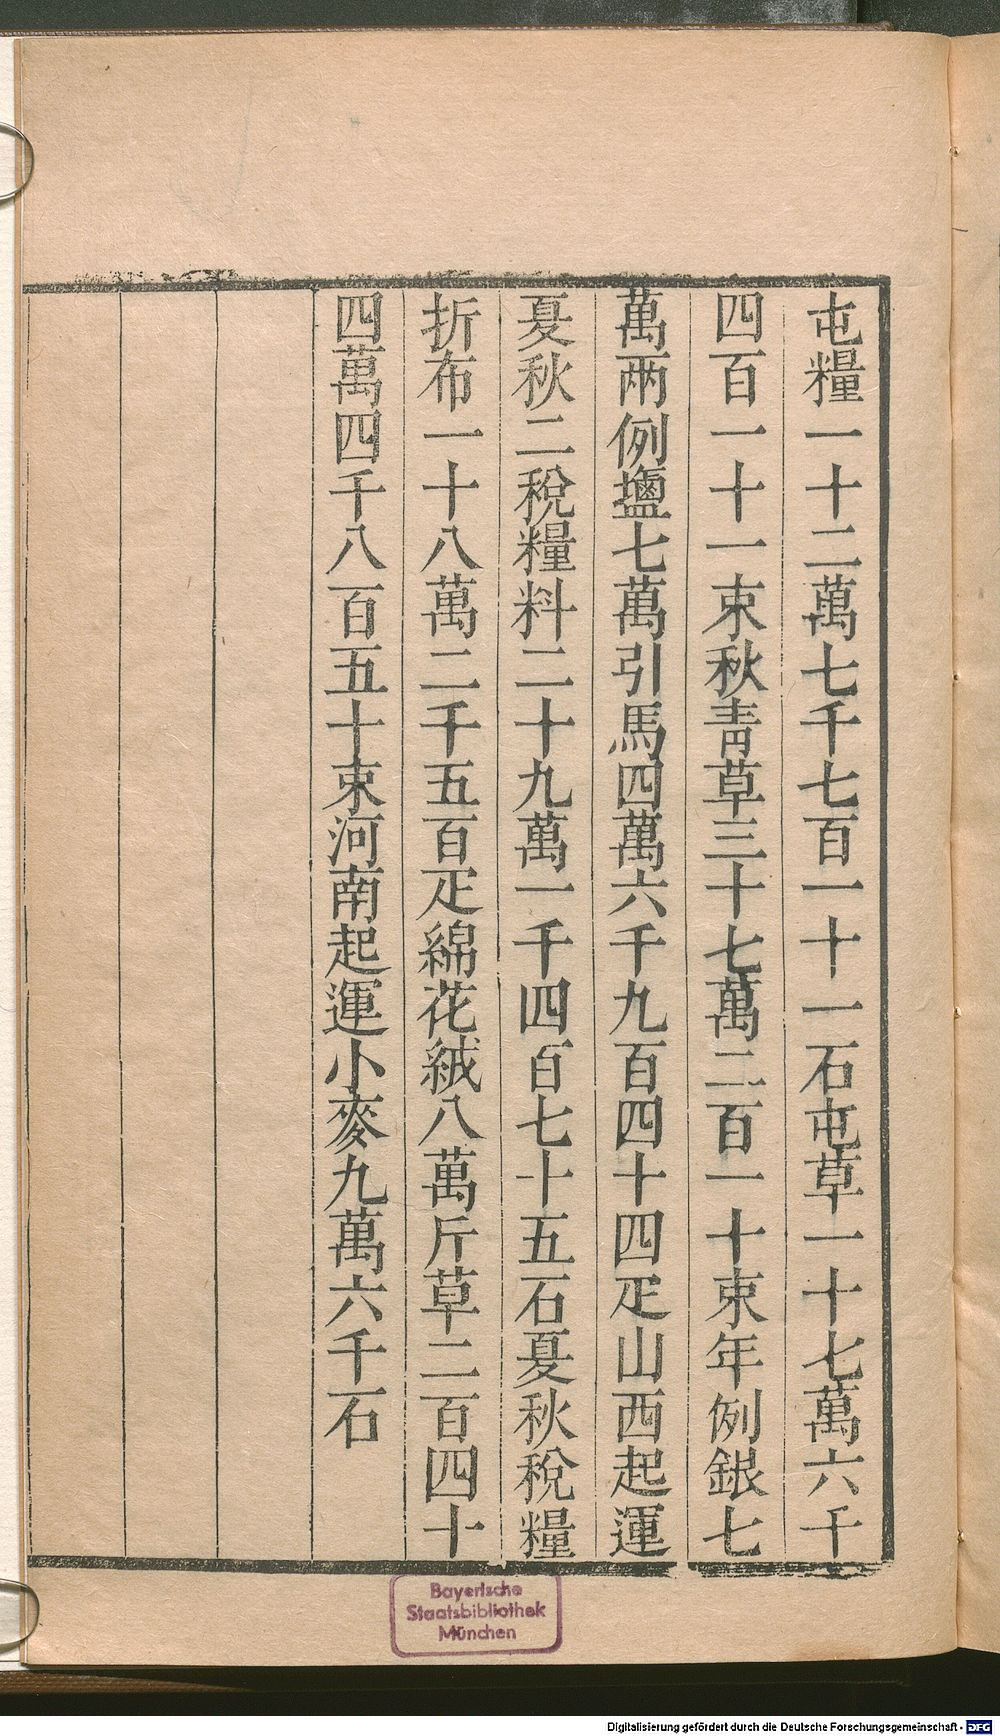 屯糧一十二萬七千七百一十一石屯草一十七萬六千
四百一十一束秋青草三十七萬二百一十束年例銀七
萬兩例鹽七萬引馬四萬六千九百四十四疋山西起運
夏秋二稅糧料二十九萬一千四百七十五石夏秋稅糧
折布一十八萬二千五百疋綿花絨八萬斤草二百四十
四萬四千八百五十束河南起運小麥九萬六千石
Bayerische
Staatsbibliothek
München
Digitalisierung gefördert durch die Deutsche Forschungsgemeinschaft - DFG